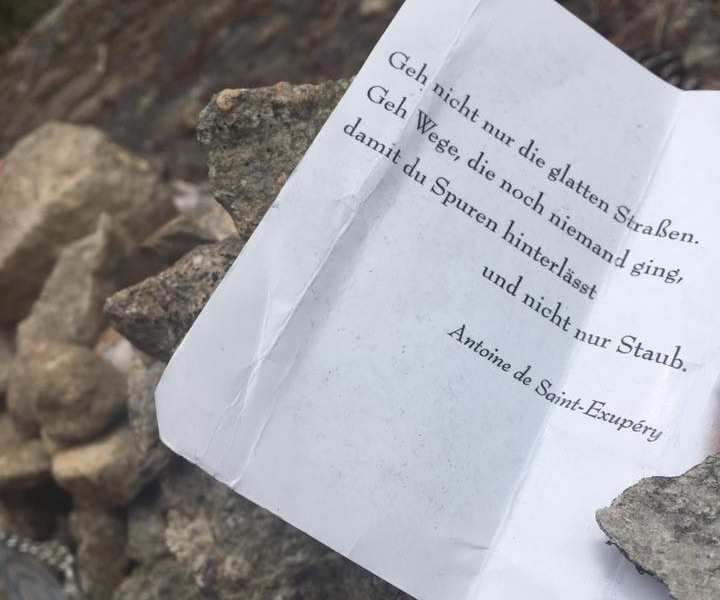 Geh nicht nur die glatten Straßen.
Geh Wege, die noch niemand ging,
damit du Spuren hinterlässt
und nicht nur Staub.
Antoine de Saint-Exupéry